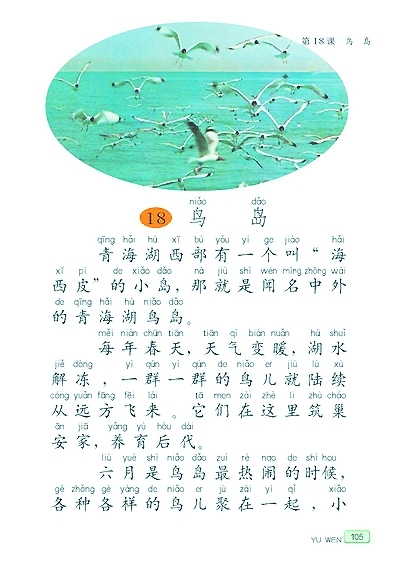 第18课 鸟 岛
niǎo dǎo
18 鸟 岛
qīng hǎi hú xī bù yǒu yí ge jiào hǎi
青海湖西部有一个叫“海
xī pí de xiǎo dǎo nà jiù shì wén míng zhōng wài
西皮”的小岛，那就是闻名中外
de qīng hǎi hú niǎo dǎo
的青海湖鸟岛。
měi nián chūn tiān tiān qì biàn nuǎn hú shuǐ
每年春天，天气变暖，湖水
jiě dòng yì qún yì qún de niǎo er jiù lù xù
解冻，一群一群的鸟儿就陆续
cóng yuǎn fāng fēi lái tā men zài zhè lǐ zhù cháo
从远方飞来。它们在这里筑巢
ān jiā yǎng yù hòu dài
安家，养育后代。
liù yuè shì niǎo dǎo zuì rè nao de shí hou
六月是鸟岛最热闹的时候，
gè zhǒng gè yàng de niǎo er jù zài yì qǐ xiǎo
各种各样的鸟儿聚在一起，小
YU WEN 105